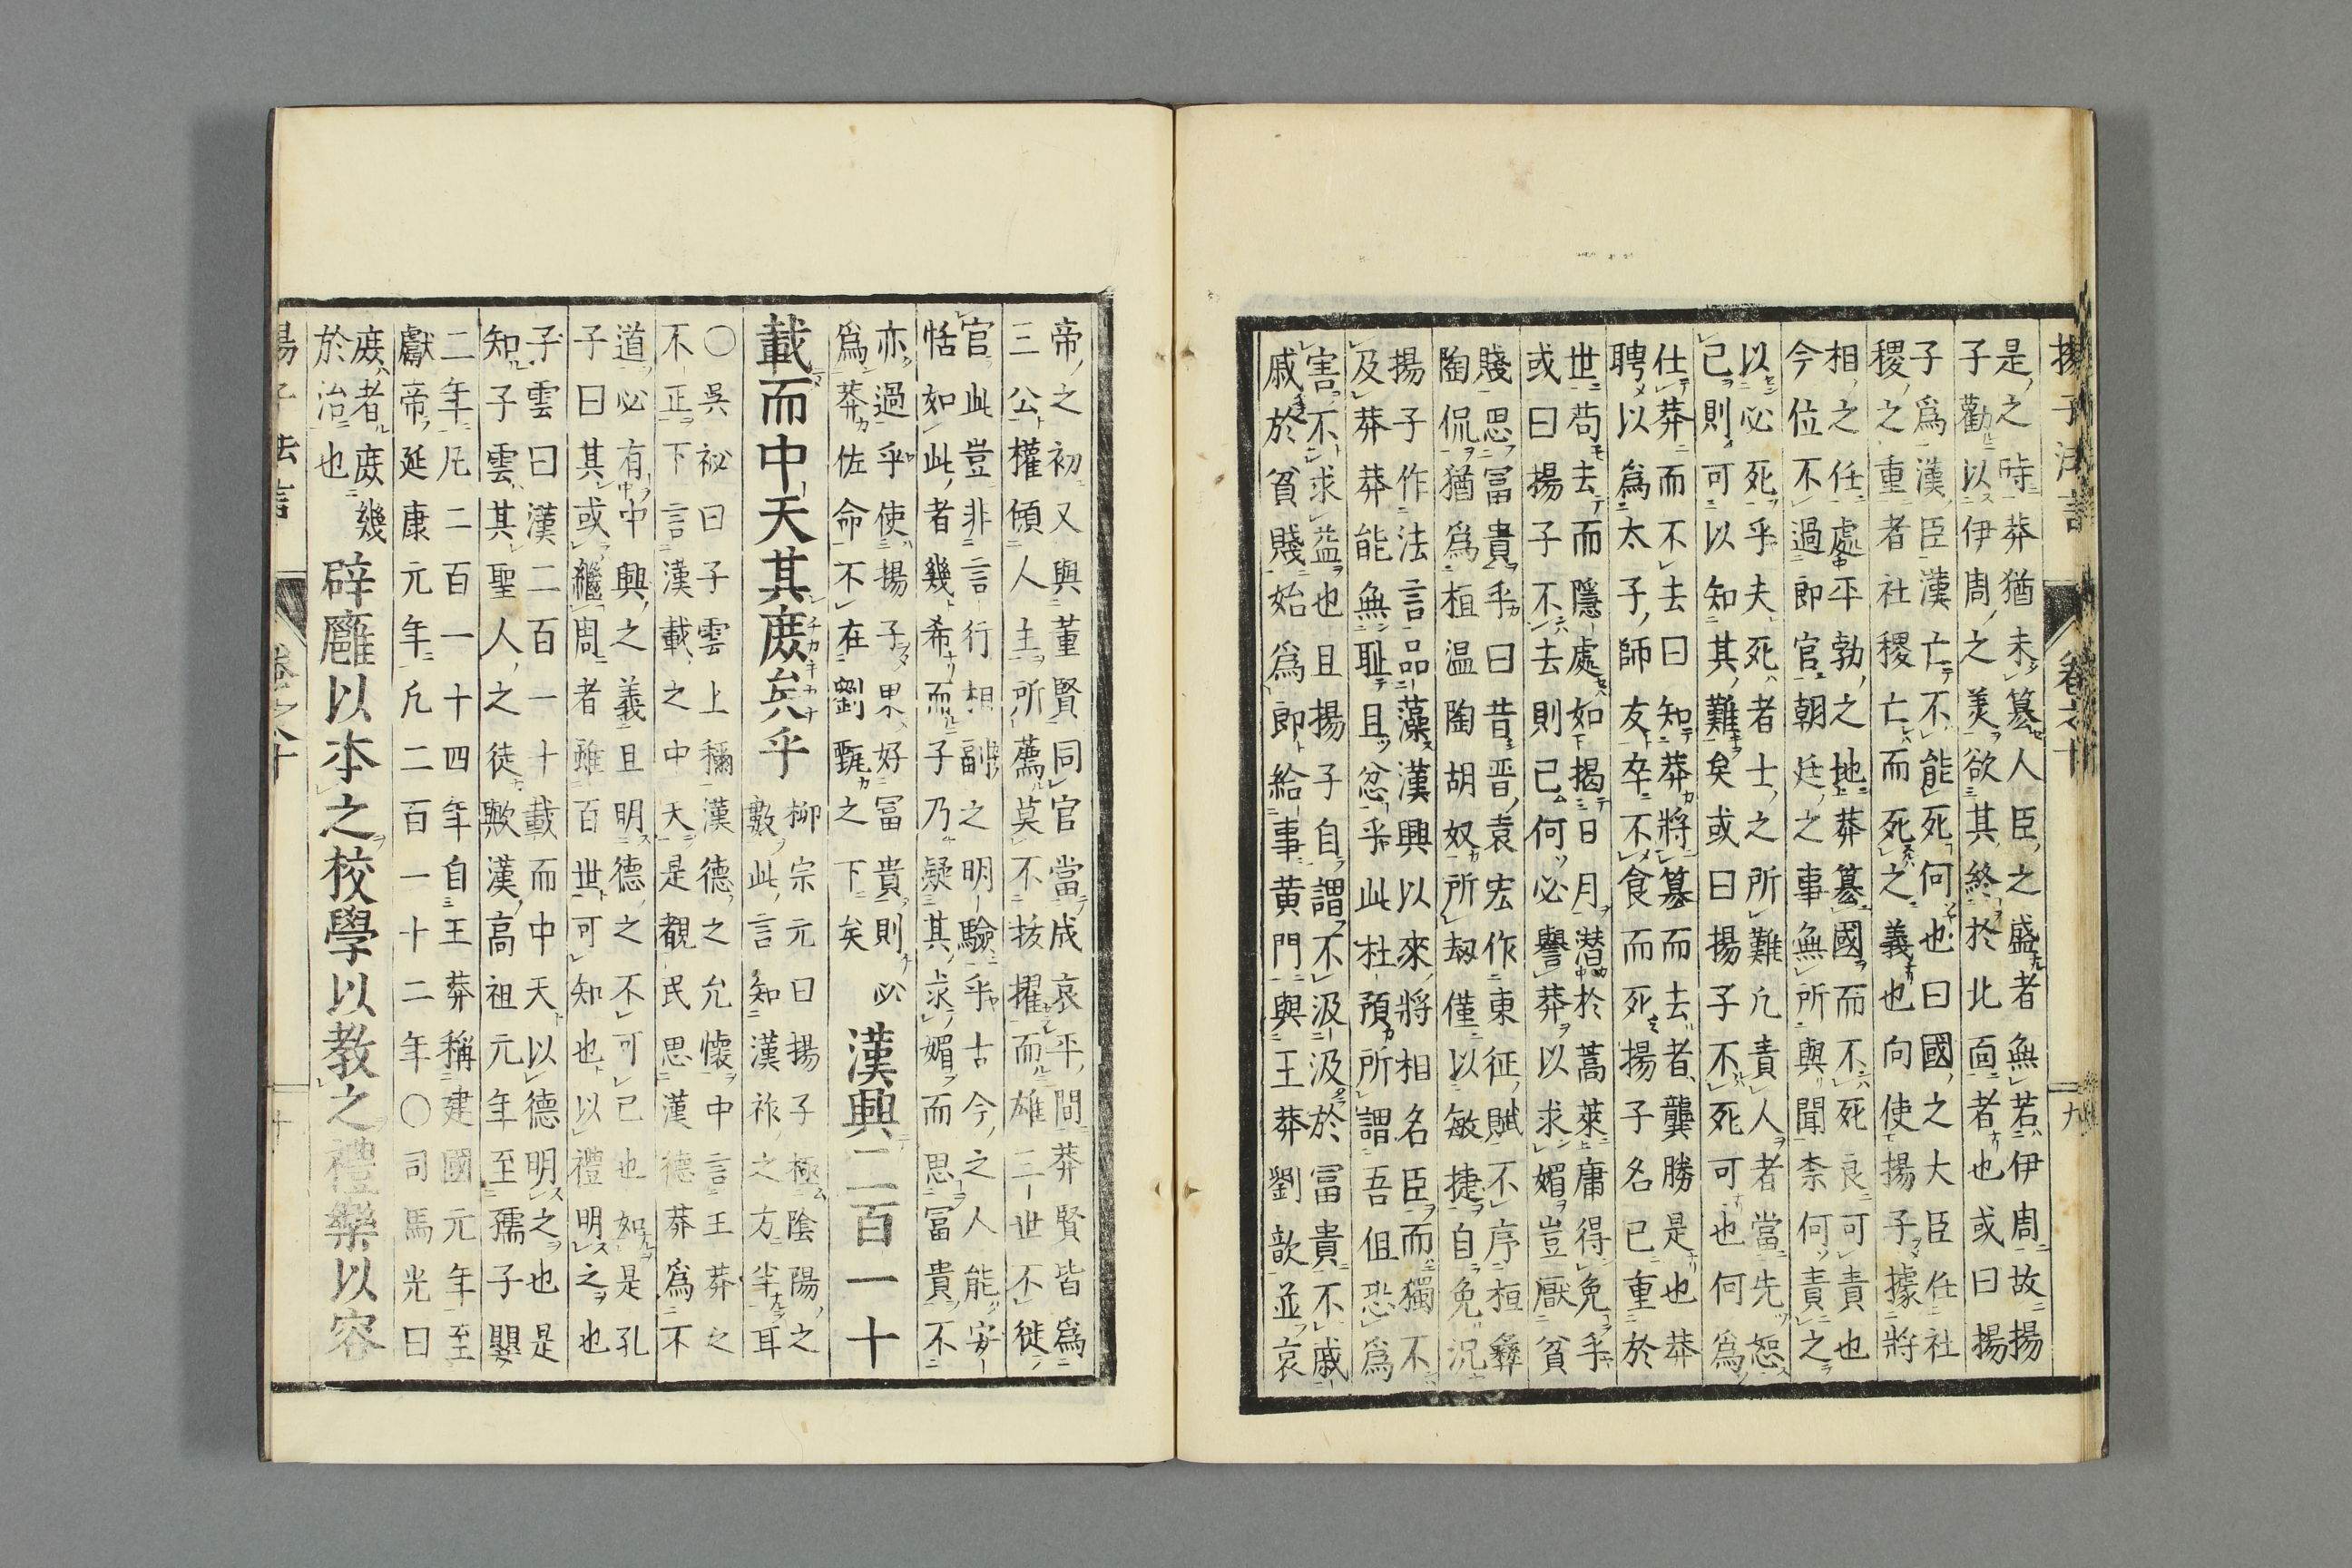 揚子法言 卷之十 九
是之時莽猶未簒人臣之盛者無若伊周故揚
子勸以伊周之美欲其終於北面者也或曰揚
子爲漢臣漢亡不能死何也曰國之大臣任社
稷之重者社稷亡而死之義也向使揚子據將
相之任處平勃之地莽簒國而不死良可責也
今位不過郎官朝廷之事無所與聞柰何責之
以必死乎夫死者士之所難凡責人者當先恕
已則可以知其難矣或曰揚子不死可也何爲
仕莽而不去曰知莽將簒而去者龔勝是也莽
聘以爲太子師友卒不食而死揚子名已重於
世苟去而隱處如揭日月潛於蒿萊庸得免乎
或曰揚子不去則已何必譽莽以求媚豈厭貧
賤思冨貴乎曰昔晋袁宏作東征賦不序桓彝
陶侃猶爲桓温陶胡奴所刼僅以敏捷自免況
揚子作法言品藻漢興以來將相名臣而獨不
及莽莽能無耻且忿乎此杜預所謂吾但恐爲
害不求益也且揚子自謂不汲汲於冨貴不戚
戚於貧賤始爲郎給事黄門與王莽劉歆並哀
帝之初又與董賢同官當成哀平間莽賢皆爲
三公權傾人主所薦莫不拔擢而雄三世不徙
官此豈非言行相副之明驗乎古今之人能安
恬如此者幾希而子乃疑其求媚而思冨貴不
亦過乎使揚子果好冨貴則必
爲莽佐命不在劉甄之下矣
漢興二百一十
載而中天其庶矣乎
柳宗元曰揚子極陰陽之
數此言知漢祚之方半耳
○吳祕曰子雲上稱漢德之允懷中言王莽之
不正下言漢載之中天是觀民思漢德莽爲不
道必有中興之義且明德之不可已也如是孔
子曰其或繼周者雖百世可知也以禮明之也
子雲曰漢二百一十載而中天以德明之也是
知子雲其聖人之徒歟漢高祖元年至孺子嬰
二年凡二百一十四年自王莽稱建國元年至
獻帝延康元年凡二百一十二年○司馬光曰
庶者庶幾
於治也
辟廱以本之校學以教之禮樂以容
揚子法言 卷之十 十